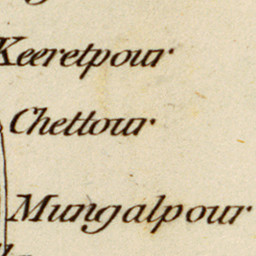 Keeretpour
Chettour
Mungalpour